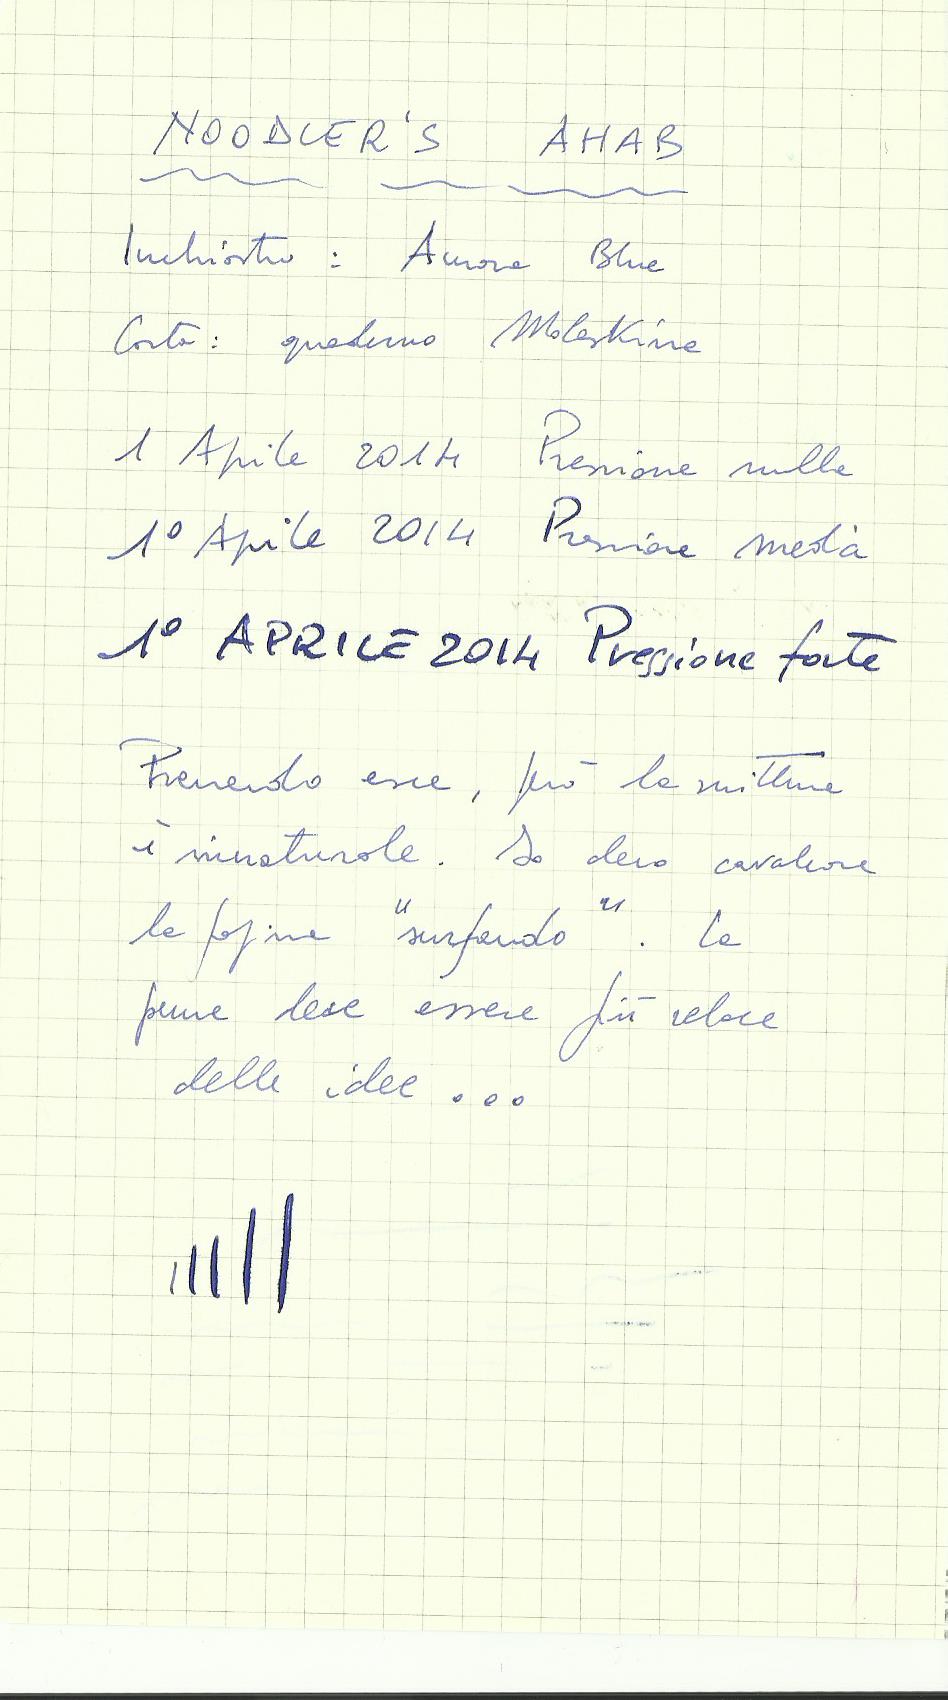 NOODLER'S AHAB
Inchiostro : Aurora Blue
Carta: quaderno Moleskine
1 Aprile 2014 Pressione nulla
1º Aprile 2014 Pressione media
1º APRILE 2014 Pressione forte
Premendo esce, però la scrittura
è innaturale. Io devo cavalcare
la pagina "surfando". La
penna deve essere più veloce
delle idee ...